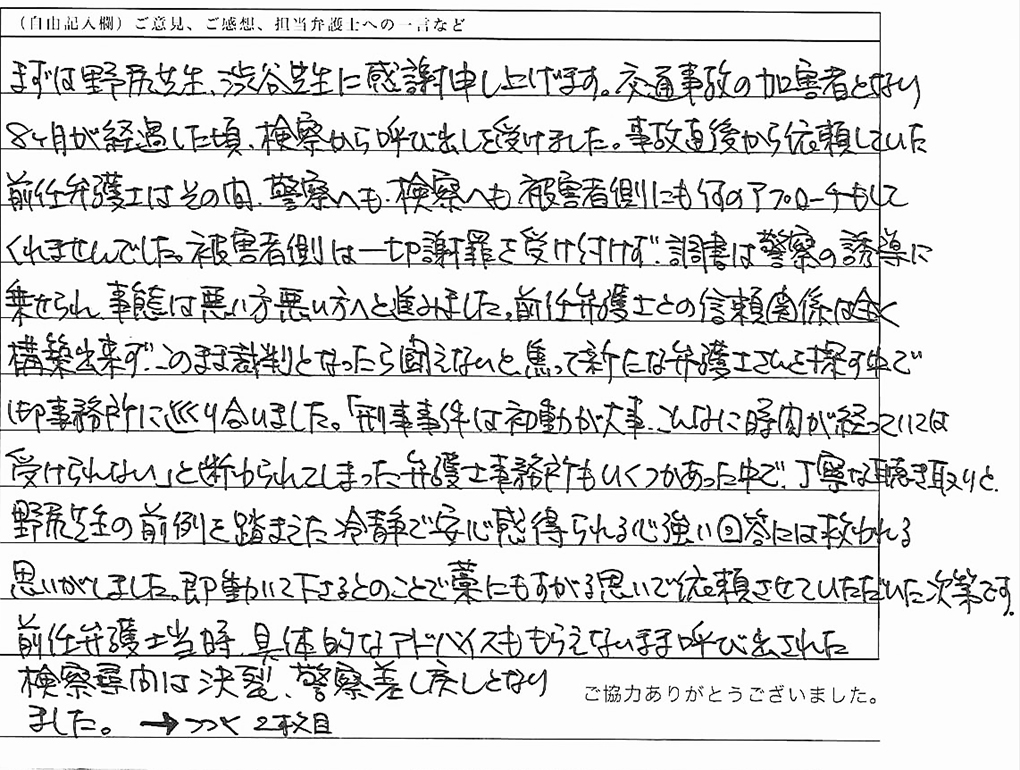 （自由記入欄）ご意見、ご感想、担当弁護士への一言など
まずは野尻先生、渋谷先生に感謝申し上げます。交通事故の加害者となり
8ヶ月が経過した頃、検察から呼び出しを受けました。事故直後から依頼していた
前任弁護士はその間、警察へも、検察へも被害者側にも何のアプローチもして
くれませんでした。被害者側は一切謝罪を受け付けず、調書は警察の誘導に
乗せられ、事態は悪い方悪い方へと進みました。前任弁護士との信頼関係は全く
構築出来ず、このまま裁判となったら闘えないと焦って新たな弁護士さんを探す中で
御事務所に巡り合いました。「刑事事件は初動が大事、こんなに時間が経っていては
受けられない」と断わられてしまった弁護士事務所もいくつかあった中で、丁寧な聴き取りと、
野尻先生の前例を踏まえた冷静で安心感得られる心強い回答には救われる
思いがしました。即動いて下さるとのことで藁にもすがる思いで依頼させていただいた次第です。
前任弁護士当時、具体的なアドバイスももらえないまま呼び出された
検察尋問は決裂、警察差し戻しとなり
ました。→つづく2枚目
ご協力ありがとうございました。